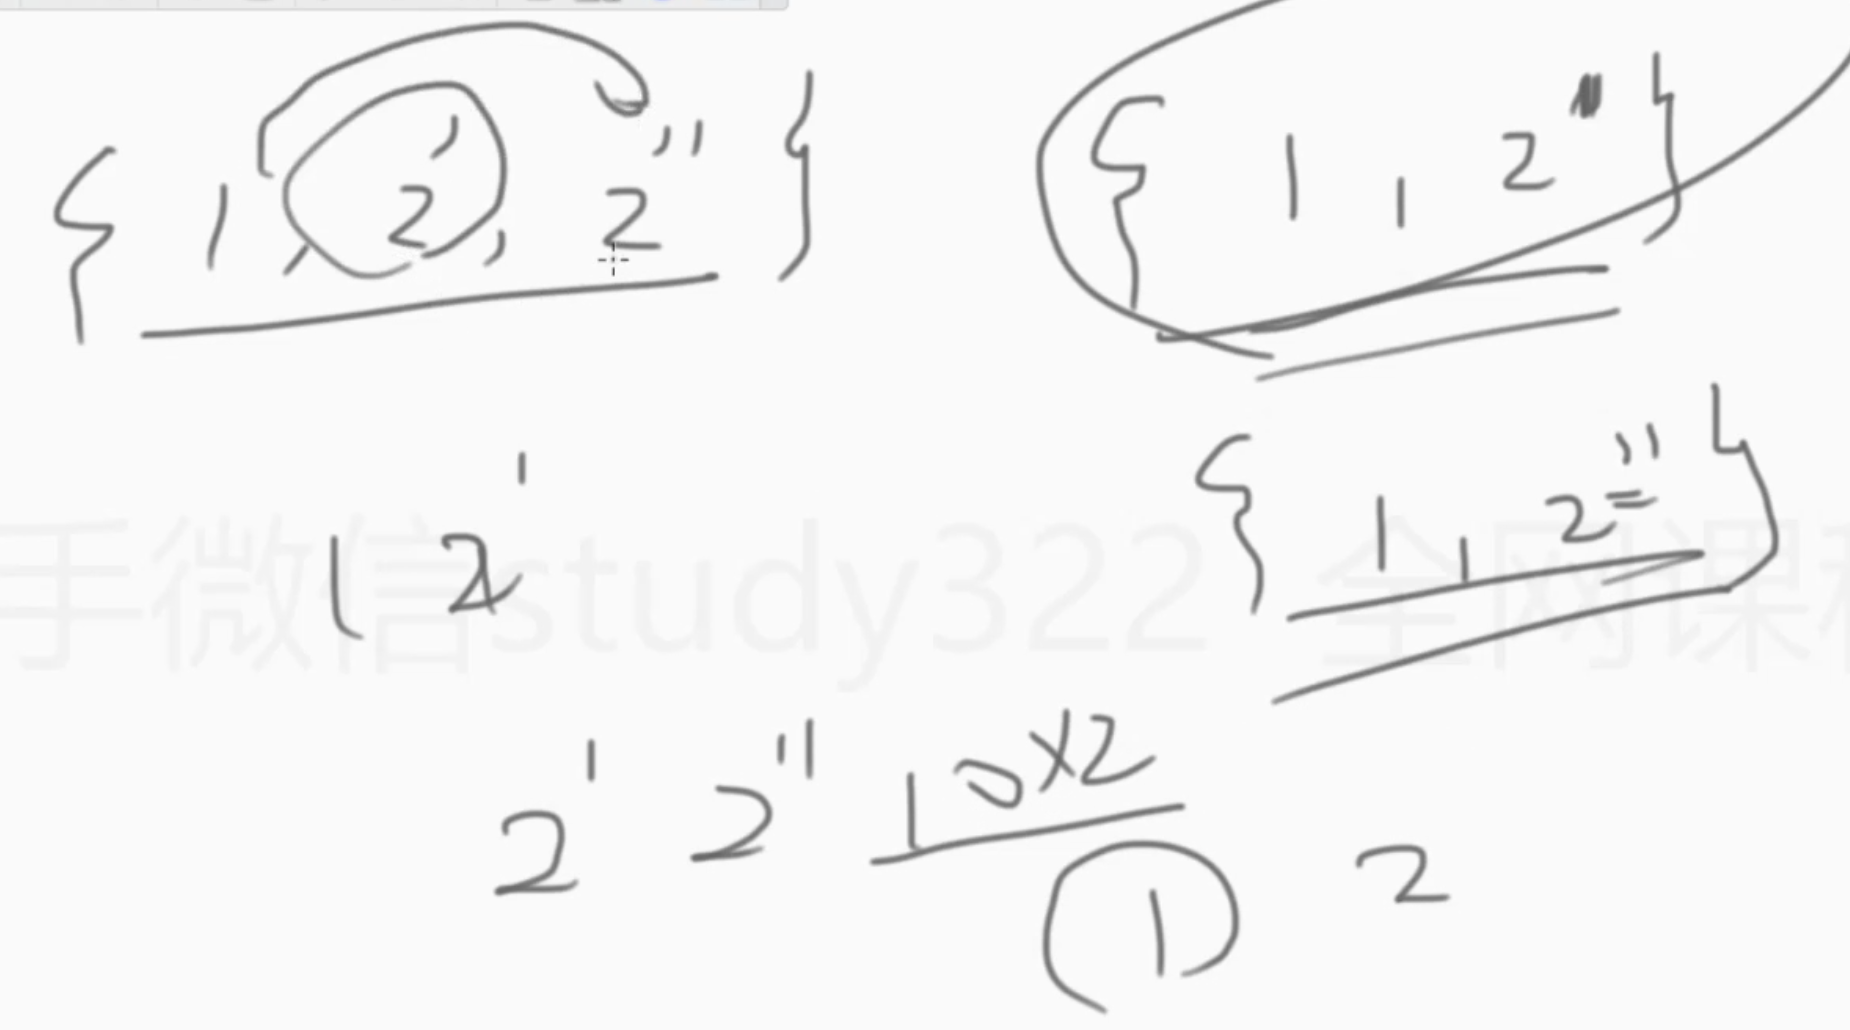 { 1, 2', 2'' } { 1, 2'' }
{ 1, 2'' }
1 2'
手微信study322 全网课程
2' 2'' 10x2
1 2